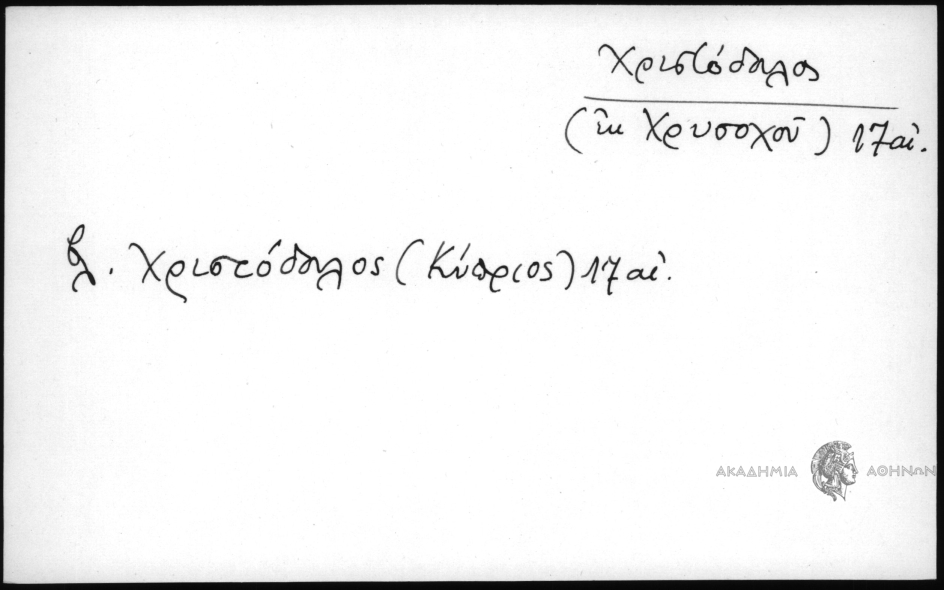 Χριστόδουλος
(ἐκ Χρυσοχοῦ) 17 αἰ.
βλ. Χριστόδουλος (Κύπριος) 17 αἰ.
ΑΚΑΔΗΜΙΑ ΑΘΗΝΩΝ